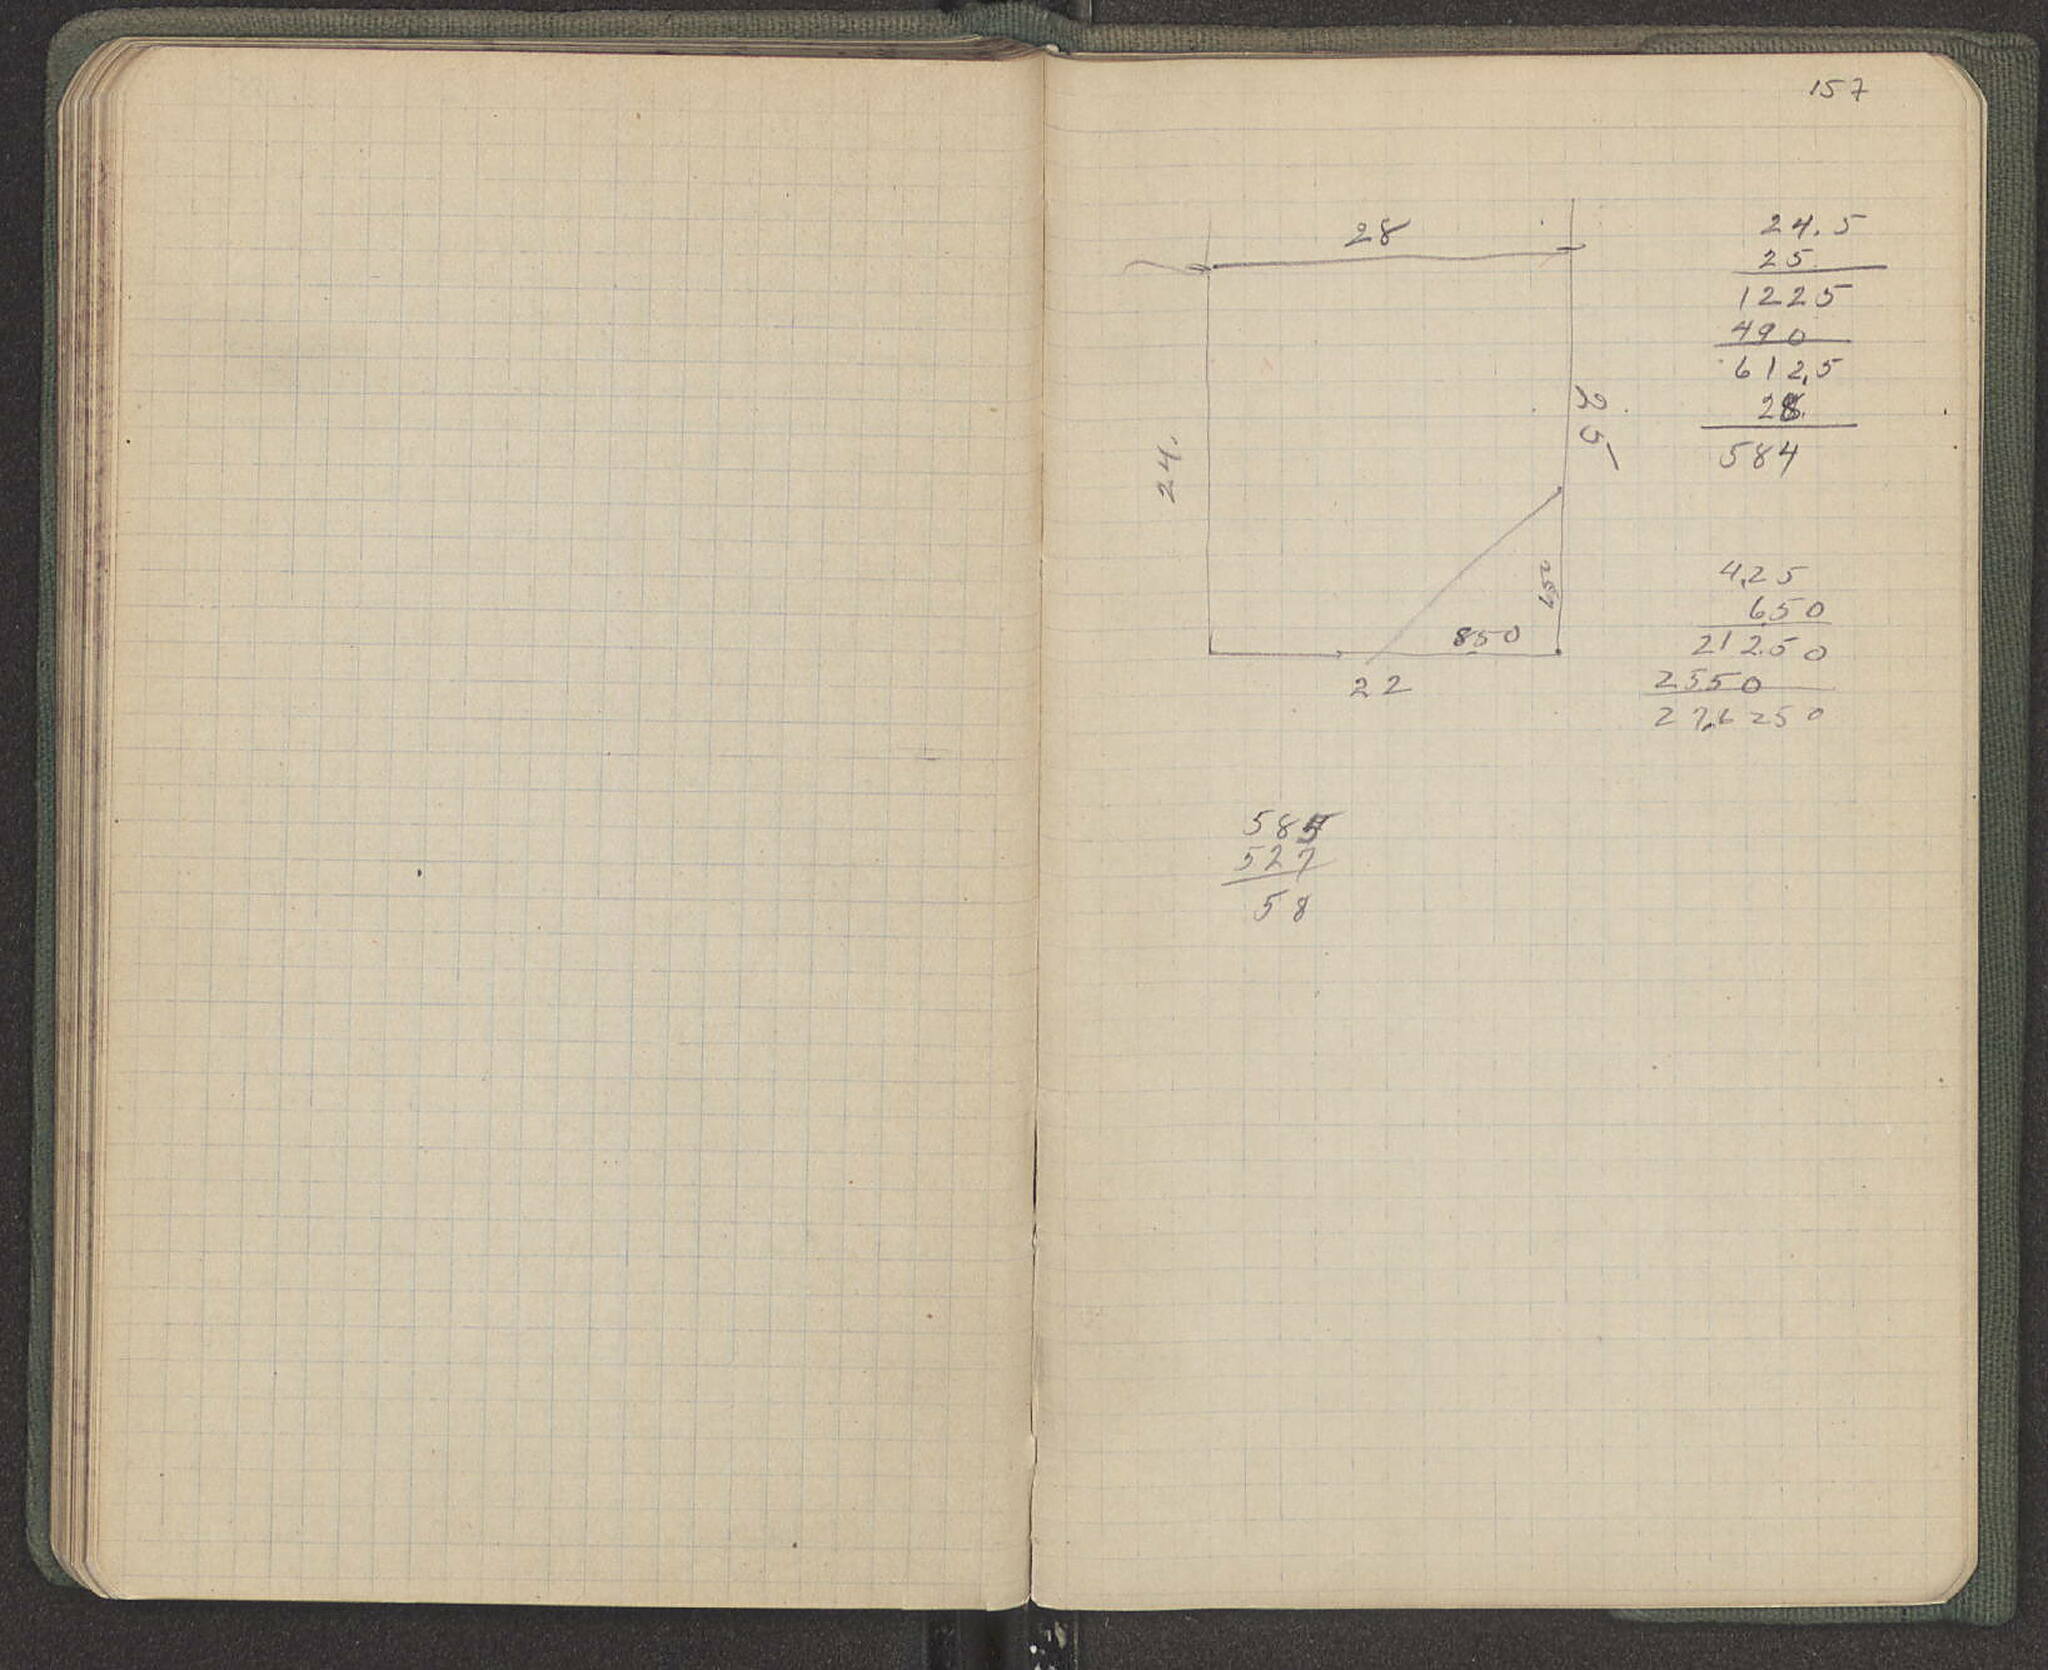 157
28
24.5
25
1225
490
612,5
28.
584
24.
25
4,25
650
21250
2550
27,6250
850
22
585
527
58